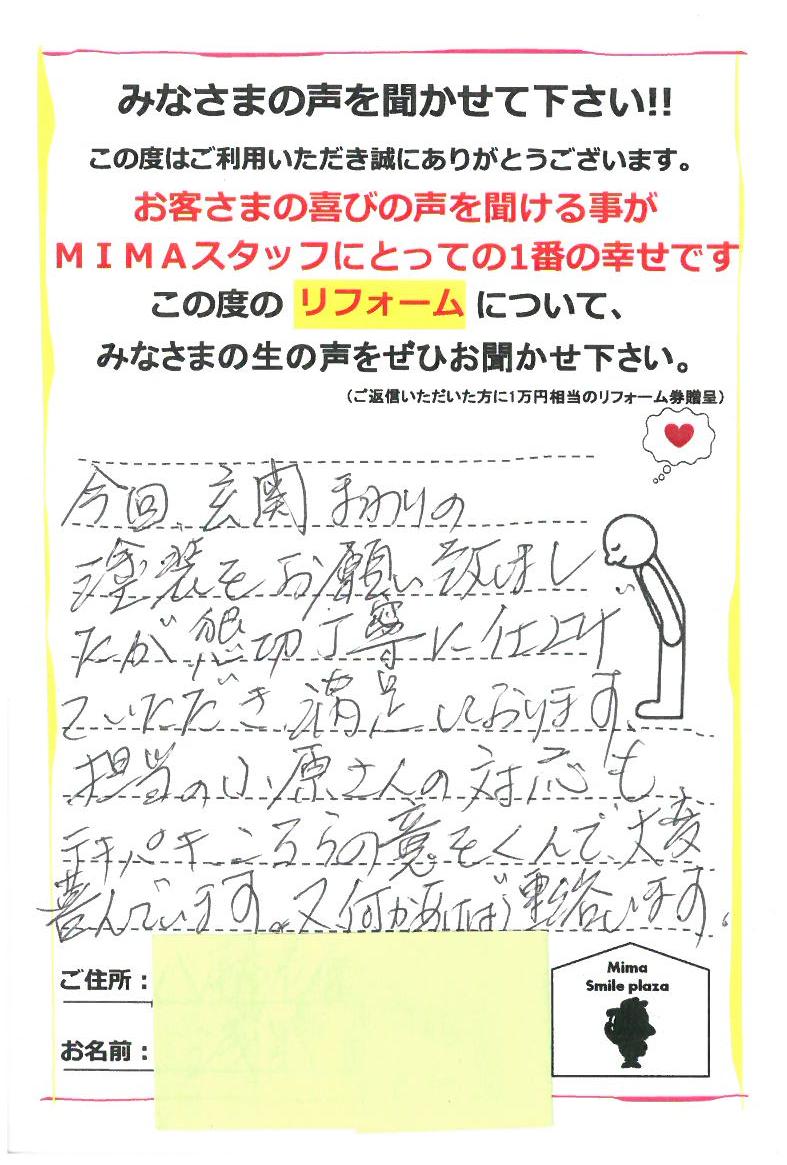 みなさまの声を聞かせて下さい!!
この度はご利用いただき誠にありがとうございます。
お客さまの喜びの声を聞ける事が
ＭＩＭＡスタッフにとっての1番の幸せです
この度の リフォーム について、
みなさまの生の声をぜひお聞かせ下さい。
（ご返信いただいた方に1万円相当のリフォーム券贈呈）
今回、玄関まわりの
塗装をお願い致しまし
たが 懇切丁寧に仕上げ
ていただき 満足しております。
担当の小原さんの対応も
テキパキ こちらの意をくんで、大変
喜んでいます。又何かあれば連絡します。
ご住所：
お名前：
Mima
Smile plaza